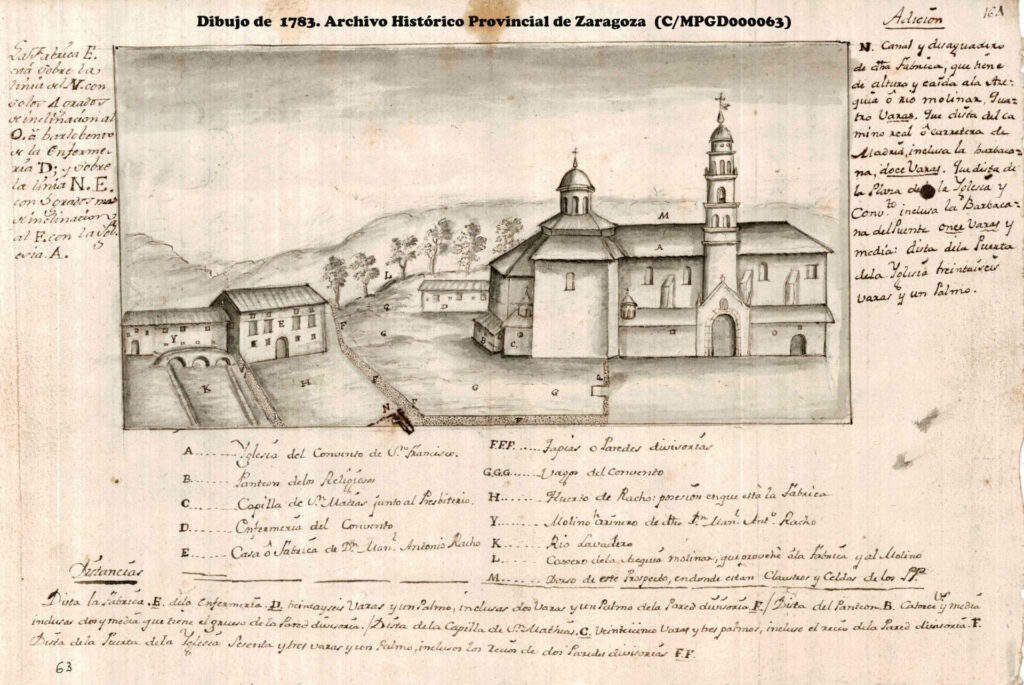 Dibujo de 1783. Archivo Histórico Provincial de Zaragoza (C/MPGD000063)
16A
La Fabrica E.
está sobre la
linia del N. con
solos 4 grados
de inclinacion al
O. á barlobento
de la Enferme-
ría D; y sobre
la linia N.E.
con 3 grados mas
de inclinacion
al E. con la
A.
Adicion
N. Canal y desaguadero
de dha Fabrica, que tiene
de altura y caida a la Aze-
quia ô rio molinar, Qua-
tro Varas. Que dista del ca
mino real ô carretera de
Madrid, inclusa la barbaca-
na, doce Varas. Que dista de
la Plaza de la Yglesia y
Convto. inclusa la Barbaca-
na del Puente once Varas y
media: dista dela Puerta
dela Yglesia treintaiseis
varas y un Palmo.
M
A
L
D
G
E
F
G
Y
B
C
K
H
F
F
G
G
F
N
F
A...... Yglesia del Convento de Sn. Francisco.
B...... Panteon delos Religiosos
C...... Capilla de Sn. Matias junto al Presbiterio.
D...... Enfermeria del Convento
E...... Casa ô Fabrica de Dn. Manl. Antonio Racho
F.F.F..... Tapias o Paredes divisorias
G.G.G...... Vagos del Convento
H...... Huerto de Racho: posesion en que està la Fabrica
Y...... Molino arinero de dho Dn. Manl. Anto. Racho
K...... Rio Lavadero
L...... de la Azequia molinar, que provehe â la Fabrica y al Molino
M...... Dorso de este Prospecto, en donde estan Claustros y Celdas de los PP.
Distancias
Dista la Fabrica .E. dela Enfermeria .D. treintayseis Varas y un Palmo, inclusas dos Varas y un Palmo dela Pared divisoria F./ Dista del Panteon B. Catorce Vs. y media
inclusas dos y media que tiene el grueso de la Pared divisoria./ Dista de la Capilla de Sn. Mathias .C. Veinticinco Varas y tres palmos, incluso el recio de la Pared divisoria F.
Dista de la Puerta de la Yglesia Sesenta y tres varas y un Palmo, inclusos los recios de dos Paredes divisorias F.F.
63